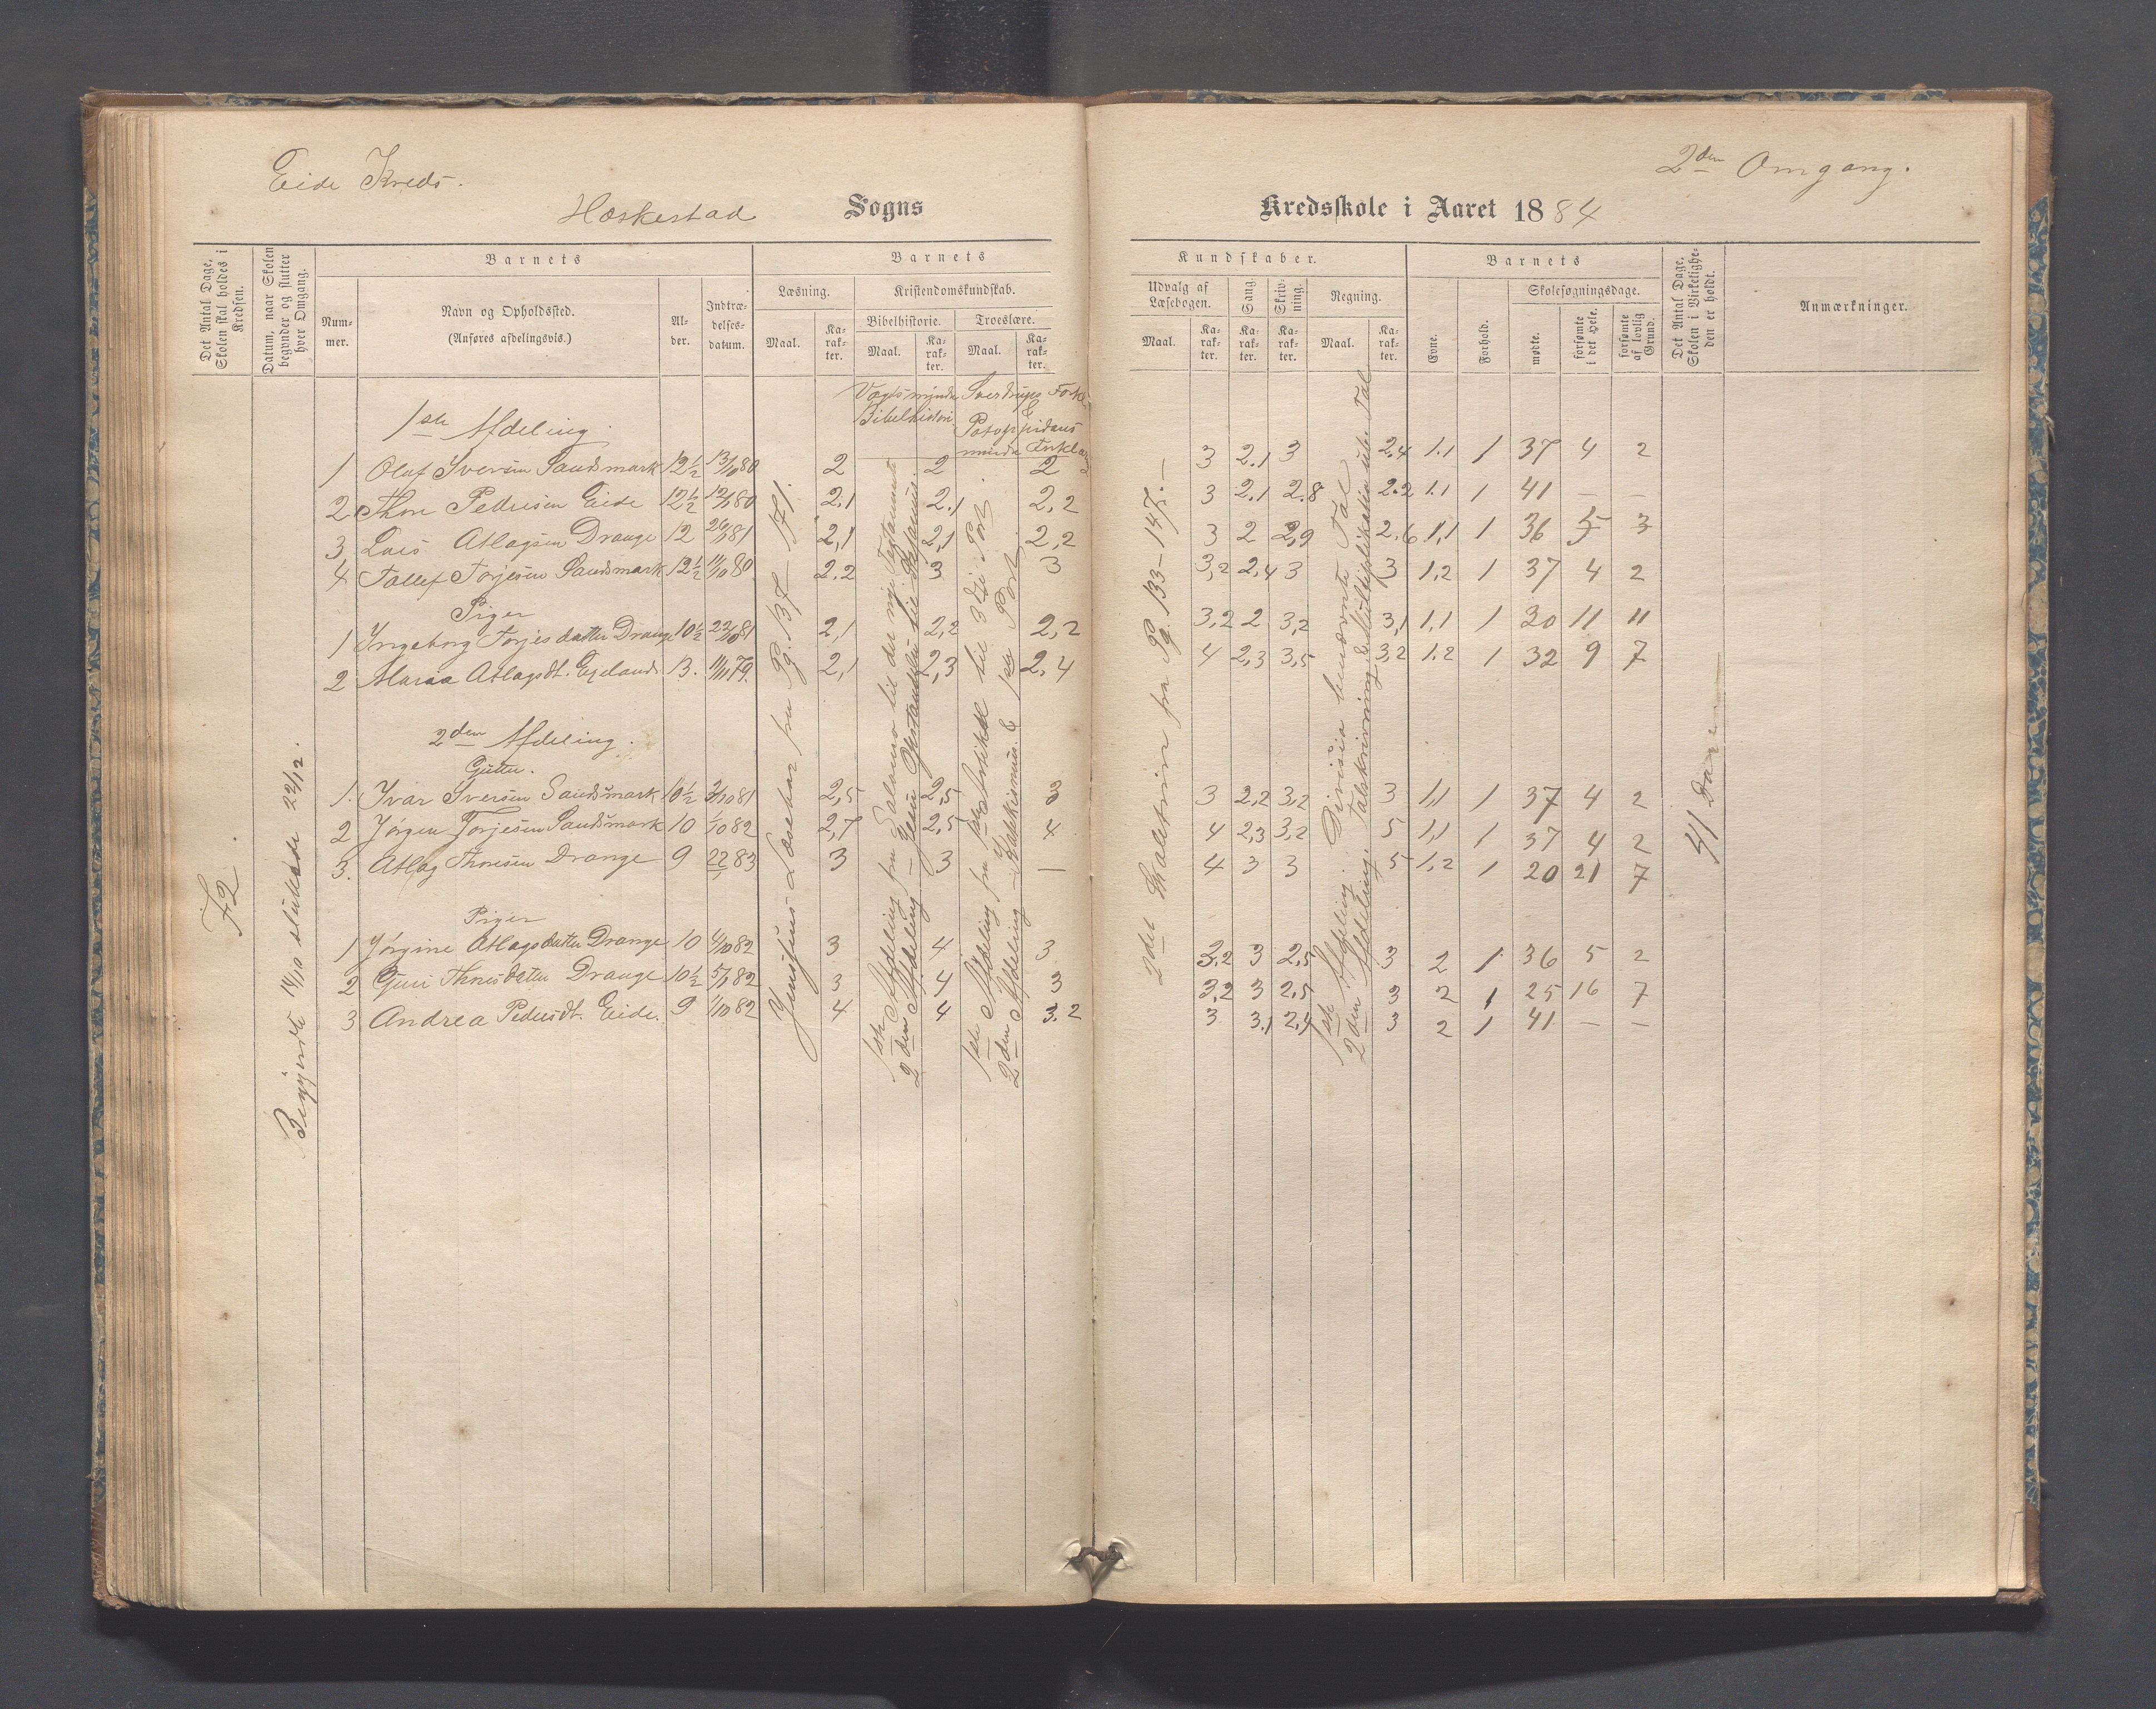 Eide Kreds.
2den Omgang.
Heskestad Sogns
Kredsskole i Aaret 1884
Det Antal Dage, Skolen skal holdes i Kredsen.
Datum, naar Skolen begynder og slutter hver Omgang.
Barnets
Num-mer.
Navn og Opholdssted.
(Anføres afdelingsvis.)
Al-der.
Indtræ-delses-datum.
Barnets
Læsning.
Maal.
Ka-rak-ter.
Kristendomskundskab.
Bibelhistorie.
Maal.
Ka-rak-ter.
Troeslære.
Maal.
Ka-rak-ter.
Kundskaber.
Udvalg af Læsebogen.
Maal.
Ka-rak-ter.
Sang.
Ka-rak-ter.
Skriv-ning.
Ka-rak-ter.
Regning.
Maal.
Ka-rak-ter.
Barnets
Evne.
Forhold.
Skolesøgningsdage.
mødte.
forsømte i det Hele.
forsømte af lovlig Grund.
Det Antal Dage, Skolen i Virkelighe-den er holdt.
Anmærkninger.
72.
Begyndte 14/10 sluttede 22/12.
Vogts mindre Bibelhistori
Sverdrups Forkl. & Potoppidans mindre Forklar
Jensenius Læsebog fra Pg. 137 – 171.
1ste Afdeling
2den Afdeling
1ste Afdeling fra 1ste Artikel til 3die Part.
2den Afdeling – Katekismus & 1ste Part
2det Skoletrin fra Pg. 133 – 147. –
1ste Afdeling. Division benævnte Tal
2den Afdeling. Talskrivning & Multiplikation ube. Tal
41 Dage
1ste Afdeling.
1 Olaf Iversen Sandsmark 12½ 13/10 80 2 2 2 3 2.1 3 2.4 1.1 1 37 4 2
2 Thore Pedersen Eide 12½ 80 2.1 2.1 2,2 3 2.1 2.8 2.2 1.1 1 41 – –
3 Lars Atlagsen Drange 12 81 2,1 2,1 2,2 3 2 2,9 2,6 1,1 1 36 5 3
4 Tollef Torjesen Sandsmark 12½ 11/10 80 2.2 3 3 3,2 2,4 3 3 1,2 1 37 4 2
Piger
1 Ingeborg Torjesdatter Drange 10½ 81 2,1 2,2 2,2 3,2 2 3,2 3,1 1,1 1 30 11 11
2 Maria Atlagsdt. Ejeland 13. 79. 2,1 2,3 2,4 4 2,3 3,5 3,2 1.2 1 32 9 7
2den Afdeling.
Gutter.
1. Ivar Iversen Sandsmark 10½ 3/10 81 2,5 2,5 3 3 2,2 3,2 3 1,1 1 37 4 2
2 Jørgen Torjesen Sandsmark 10 1/10 82 2,7 2,5 4 4 2,3 3,2 5 1,1 1 37 4 2
3. Atlag Thoresen Drange 9 83 3 3 — 4 3 3 5 1,2 1 20 21 7
Piger
1 Jørgine Atlagsdatter Drange 10 4/10 82 3 4 3 3,2 3 2,5 3 2 1 36 5 2
2 Guri Thoresdatter Drange 10½ 82 3 4 3 3,2 3 2,5 3 2 1 25 16 7
3 Andrea Pedersdt. Eide. 9 1/10 82 4 4 3.2 3 3.1 2,4 3 2 1 41 – –